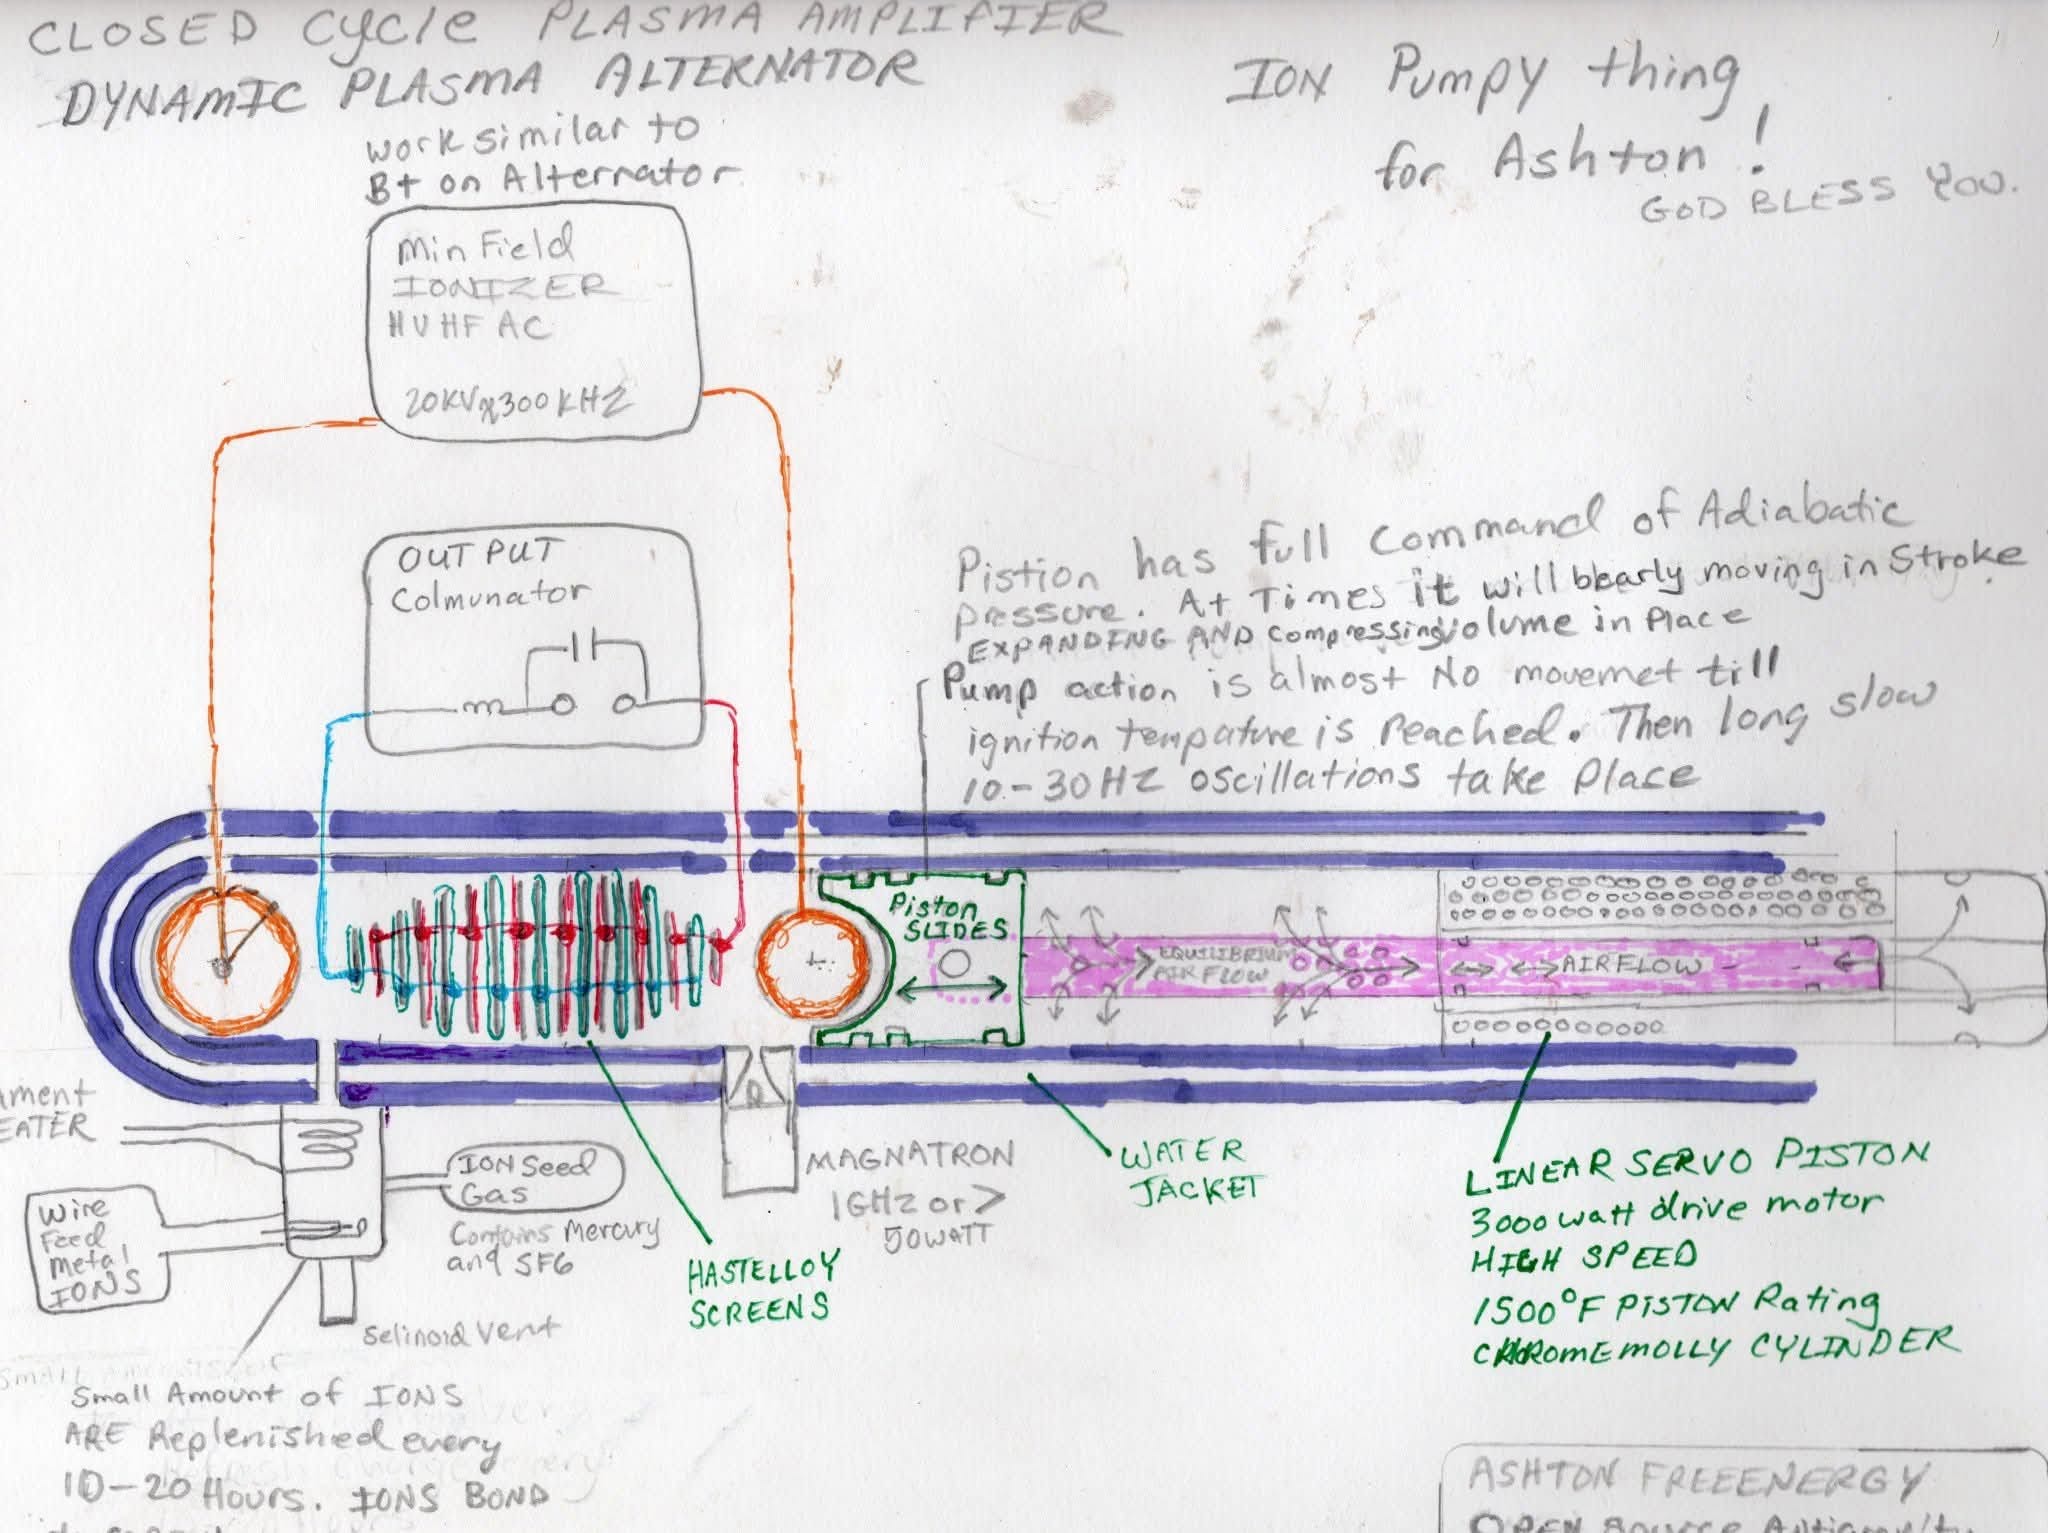 CLOSED CYCLE PLASMA AMPLIFIER
DYNAMIC PLASMA ALTERNATOR
work similar to
B+ on Alternator
ION Pumpy thing
for Ashton!
GOD BLESS YOU.
Min Field
IONIZER
HV HF AC
20KV 300KHZ
OUTPUT
Colmunator
Pistion has full Command of Adiabatic
pressure. At Times it will bearly moving in Stroke
EXPANDING AND compressing volume in Place
Pump action is almost No movemet till
ignition tempature is reached. Then long slow
10-30HZ oscillations take Place
Piston
SLIDES
EQUILIBRIUM
AIRFLOW
AIRFLOW
EATER
Wire
Feed
Metal
IONS
ION Seed
Gas
Contains Mercury
and SF6
Selinoid Vent
HASTELLOY
SCREENS
MAGNATRON
1GHZ or >
50WATT
WATER
JACKET
LINEAR SERVO PISTON
3000 watt drive motor
HIGH SPEED
1500°F PISTON Rating
CHROMEMOLLY CYLINDER
Small Amount of IONS
ARE Replenished every
10-20 Hours. IONS BOND
ASHTON FREEENERGY
OPEN Source